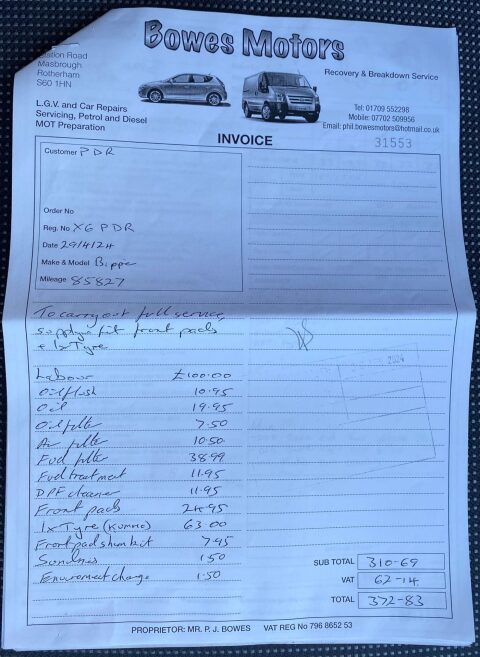 Bowes Motors
ation Road
Masbrough
Rotherham
S60 1HN
Recovery & Breakdown Service
L.G.V. and Car Repairs
Servicing, Petrol and Diesel
MOT Preparation
Tel: 01709 552298
Mobile: 07702 509956
Email: phil.bowesmotors@hotmail.co.uk
INVOICE
31553
Customer PDR
Order No
Reg. No X6 PDR
Date 29/4/24
Make & Model Bipper
Mileage 85827
To carry out full service,
supply & fit front pads
& 1x Tyre
Labour £100.00
Oil flush 10.95
Oil 19.95
Oil filter 7.50
Air filter 10.50
Fuel filter 38.99
Fuel treatment 11.95
DPF cleaner 11.95
Front pads 24.95
1x Tyre (Kumho) 63.00
Front pad shim kit 7.95
Sundries 1.50
Enviroment charge 1.50
2024
SUB TOTAL 310-69
VAT 62-14
TOTAL 372-83
PROPRIETOR: MR. P. J. BOWES VAT REG No 796 8652 53